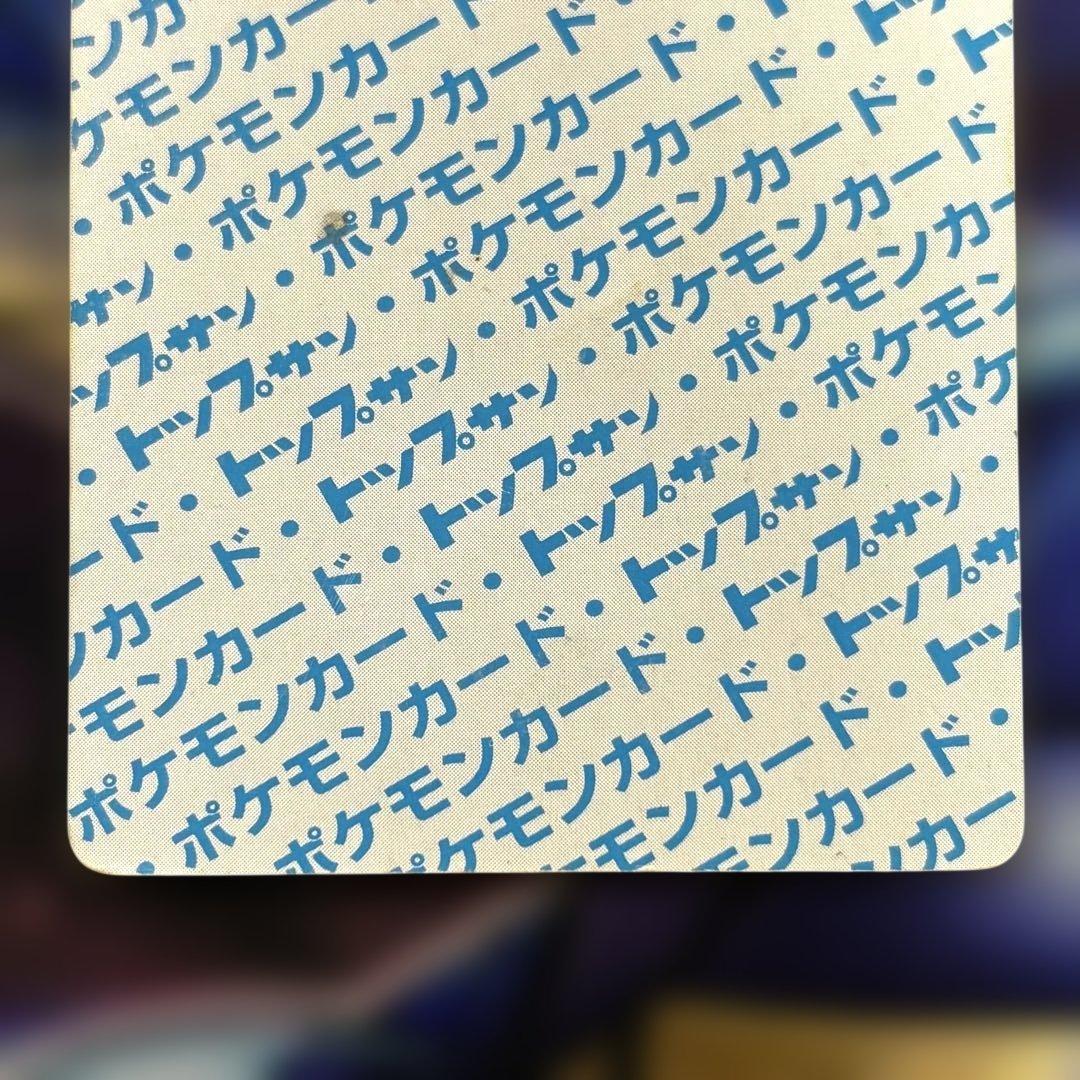 ンカ
ケモンカー
・ポケモンカード
サン・ポケモンカード
ップサン・ポケモンカード・
・トップサン・ポケモンカード・ト
ード・トップサン・ポケモンカード・トッ
ンカード・トップサン・ポケモンカード
モンカード・トップサン・ポケモンカー
ポケモンカード・トップサン・ポケモン
・ポケモンカード・トップサン・ポケ
ポケモンカード・トップサン・
ポケモンカード・トップサ
モンカード・トッ
モンカード・
ンカー